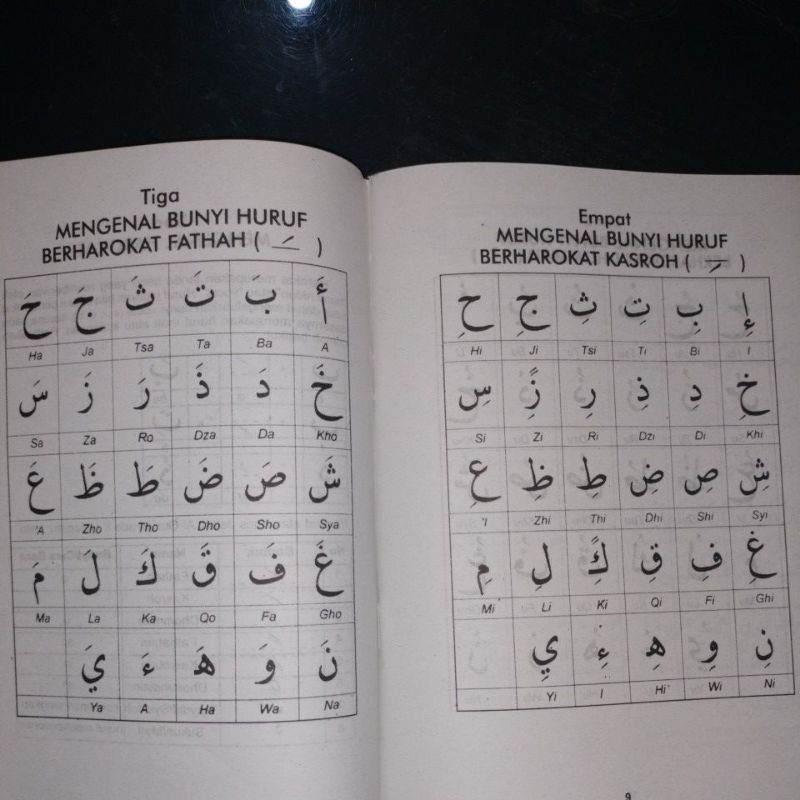 Tiga
MENGENAL BUNYI HURUF
BERHAROKAT FATHAH ( ـَ )
أَ بَ تَ ثَ جَ حَ
Ha Ja Tsa Ta Ba A
خَ دَ ذَ رَ زَ سَ
Sa Za Ro Dza Da Kho
شَ صَ ضَ طَ ظَ عَ
'A Zho Tho Dho Sho Sya
غَ فَ قَ كَ لَ مَ
Ma La Ka Qo Fa Gho
نَ وَ هَ ءَ يَ
Ya A Ha Wa Na
Empat
MENGENAL BUNYI HURUF
BERHAROKAT KASROH ( ـِ )
إِ بِ تِ ثِ جِ حِ
Hi Ji Tsi Ti Bi I
خِ دِ ذِ رِ زِ سِ
Si Zi Ri Dzi Di Khi
شِ صِ ضِ طِ ظِ عِ
'I Zhi Thi Dhi Shi Syi
غِ فِ قِ كِ لِ مِ
Mi Li Ki Qi Fi Ghi
نِ وِ هِ ءِ يِ
Yi I Hi Wi Ni
9